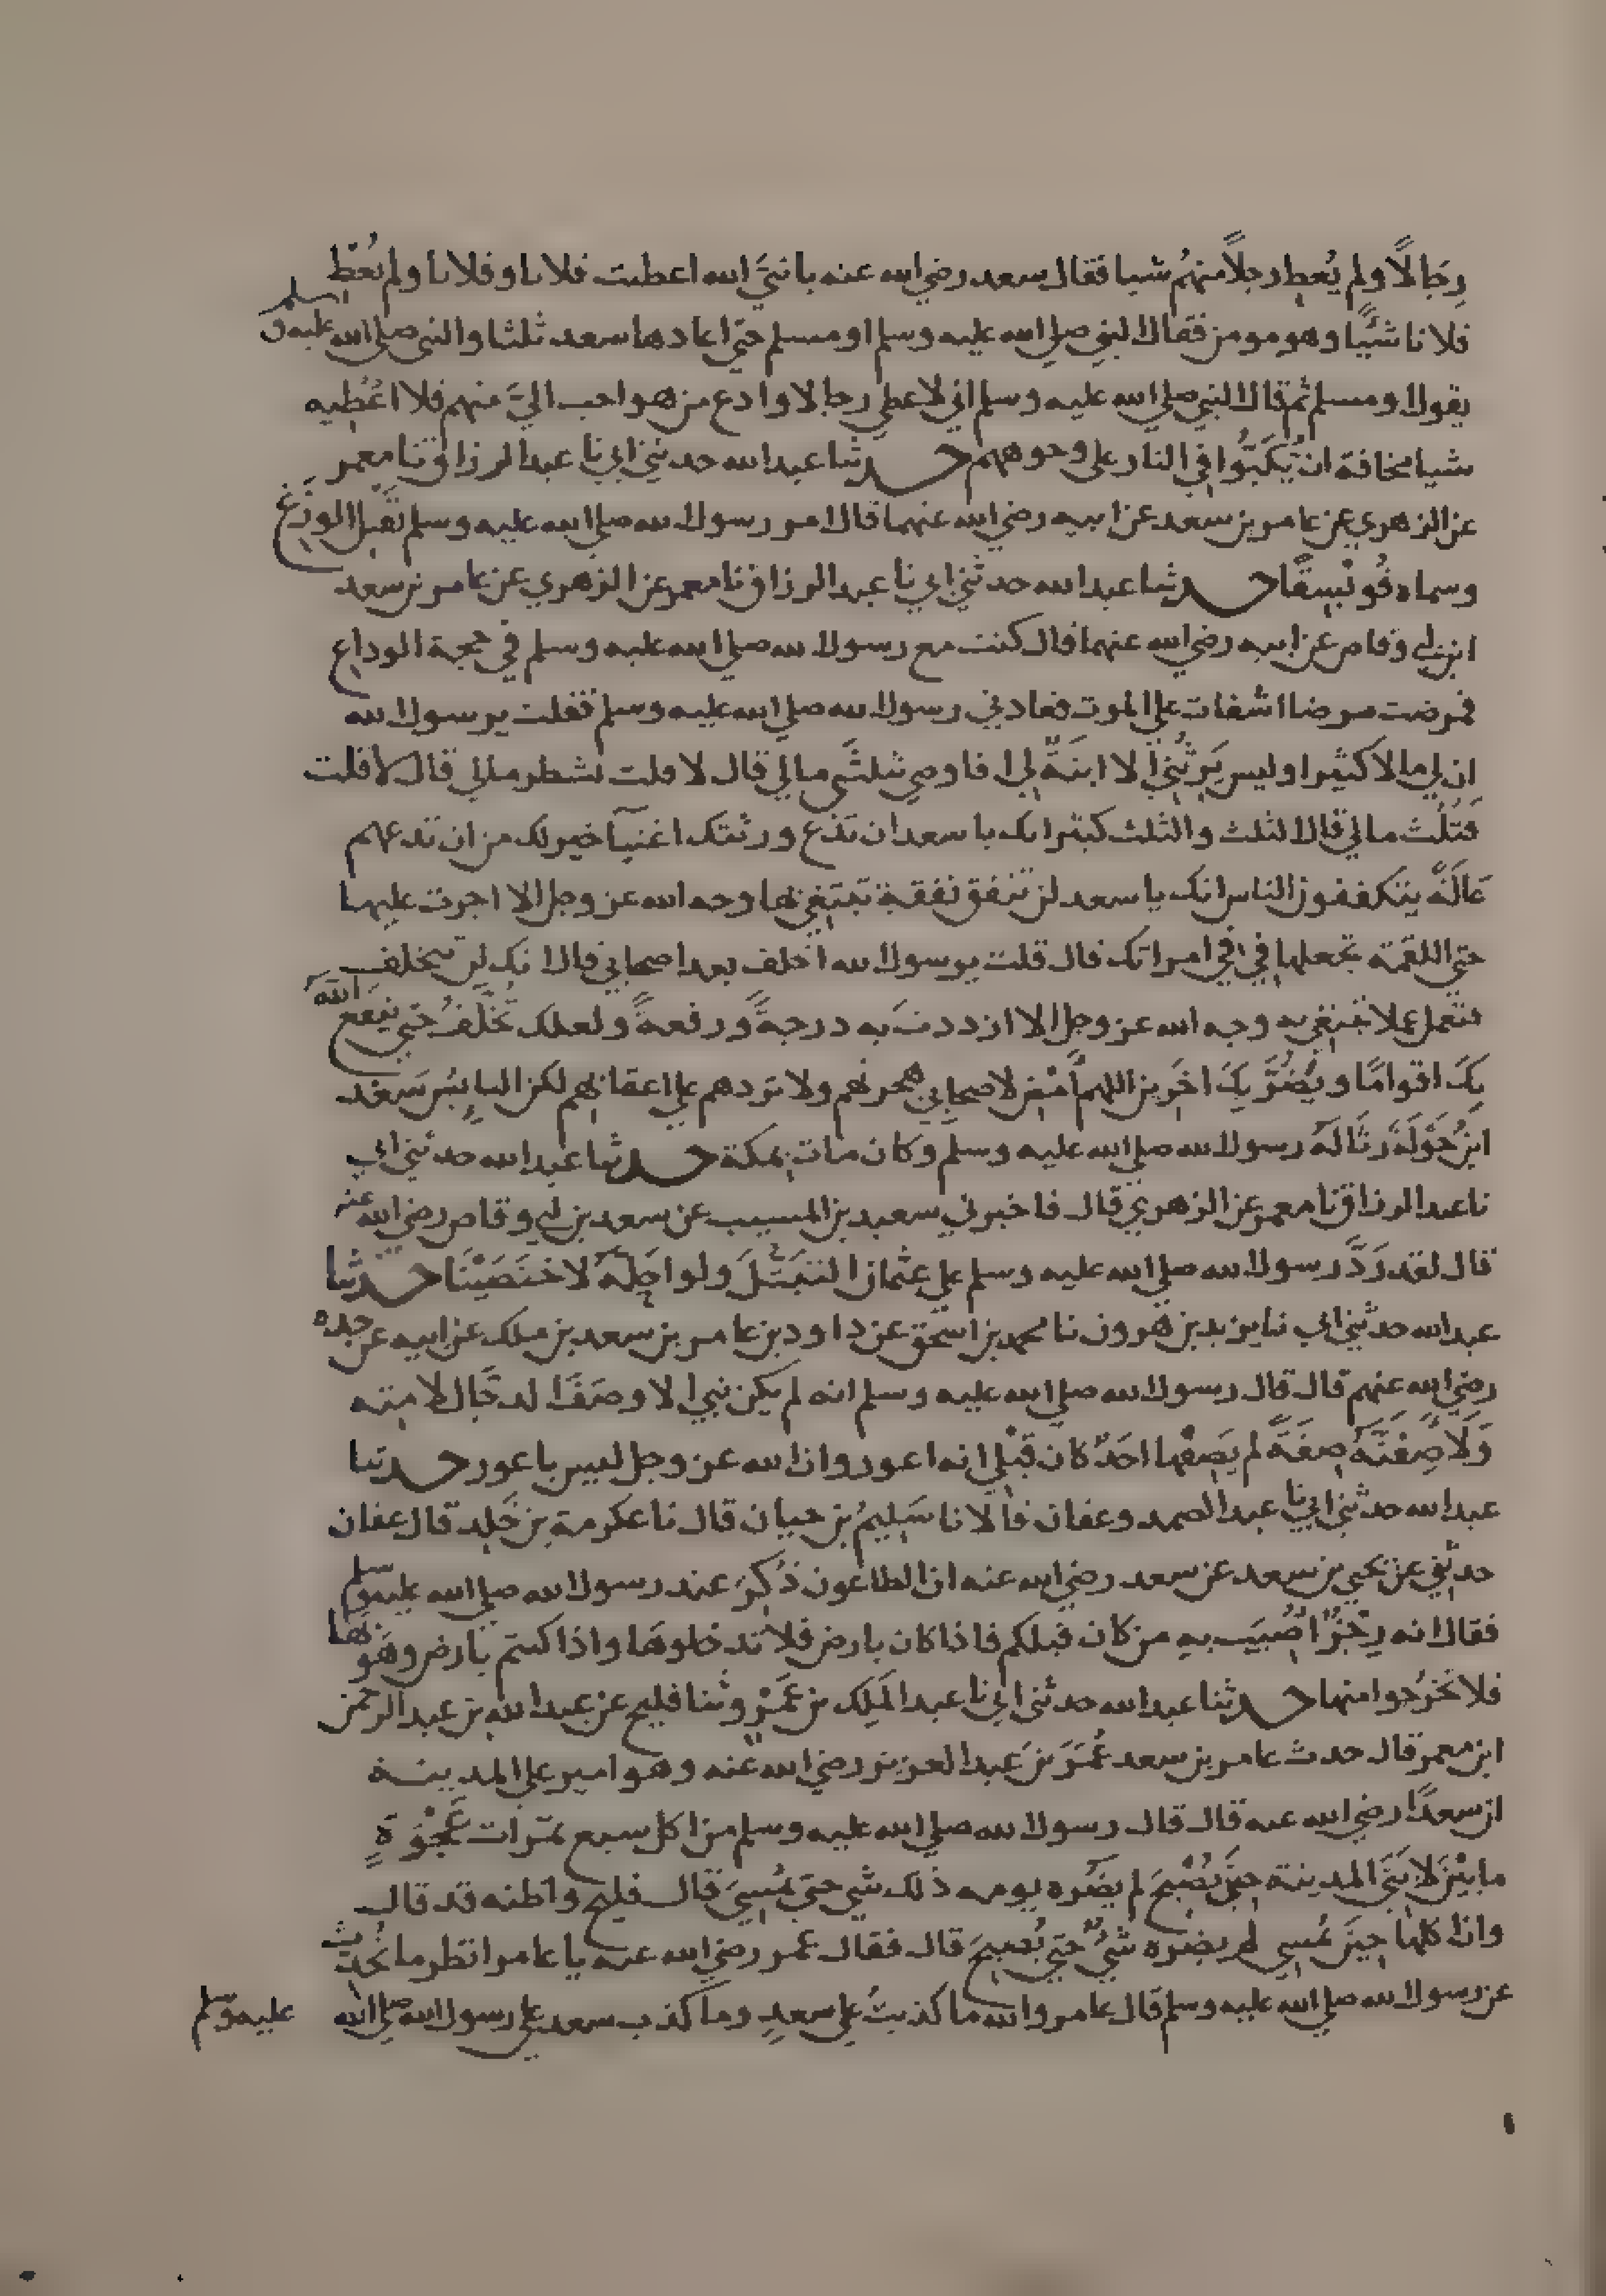 رجالًا ولم يُعطِ رجلًا منهُم شيا فقال سعد رضي الله عنه يا نبيَّ الله اعطيت فلانا وفلانا ولم تُعْطِ
فلانا شيًّا وهو مومن فقال النبي صلي الله عليه وسلم او مسلم حتي اعادها سعد ثلثا والنبي صلي الله عليه وسلم
يقول او مسلم ثم قال النبي صلي الله عليه وسلم اني لاعطي رجالا وادع من هو احب اليَّ منهم فلا اعْطِيه
شيا مخافة ان يُكَبُّوا في النار علي وجوههم حدثنا عبد الله حدثني ابي نا عبد الرزاق نا معمر
عن الزهري عن عامر بن سعد عن ابيه رضي الله عنهما قال امر رسول الله صلي الله عليه وسلم بقتل الوزغ
وسماه فُوَيْسِقًا حدثنا عبد الله حدثني ابي نا عبد الرزاق نا معمر عن الزهري عن عامر بن سعد
ابن ابي وقاص عن ابيه رضي الله عنهما قال كنت مع رسول الله صلي الله عليه وسلم في حجة الوداع
فمرضت مرضا اشفات علي الموت فعادني رسول الله صلي الله عليه وسلم فقلت يرسول الله
ان لي مالا كثيرا وليس يَرِثُنِي الا ابنَةٌ لي افاوصي بثلثَي مالي قال لا قلت بشطر مالي قال لا قلت
فثُلُث مالي قال الثلث والثلث كثير انك يا سعد ان تدع ورثتك اغنيآ خير لك من ان تدعهم
عَالَةً يتكففون الناس انك يا سعد لن تنفق نفقة تبتغي بها وجه الله عز وجل الا اجرت عليها
حتي اللقمة تجعلها في في امراتك قال قلت يرسول الله اخلف بعد اصحابي قال انك لن تتخلف
فتعمل عملا تبتغي به وجه الله عز وجل الا ازددتَ به درجةً ورفعةً ولعلك تُخَلَّفُ حتي ينفع الله
بكَ اقوامًا ويَضُرَّ بِكَ اخَرِين اللهم امْضِ لاصحابي هجرتهم ولا تردهم علي اعقابهم لكن البايِسُ سَعْد
ابنُ خَوْلَةَ رَثَا لَهُ رسول الله صلي الله عليه وسلم وكان مات بمكة حدثنا عبد الله حدثني ابي
نا عبد الرزاق نا معمر عن الزهري قال فاخبرني سعيد بن المسيب عن سعد بن ابي وقاص رضي الله عنه
قال لقد رَدَّ رسول الله صلي الله عليه وسلم علي عثمان التبَتُّلَ ولو احَلَّهُ لاختَصَيْنَا حدثنا
عبد الله حدثني ابي نا يزيد بن هرون نا محمد بن اسحق عن داود بن عامر بن سعد بن ملك عن ابيه عن جده
رضي الله عنهم قال قال رسول الله صلي الله عليه وسلم انه لم يكن نبي الا وصَفَ الدجَّال لامته
وَلَاصِفَنَّهُ صِفَةً لم يَصِفْها احَدٌ كان قَبْلِي انه اعور وان الله عز وجل ليس باعور حدثنا
عبد الله حدثني ابي نا عبد الصمد وعفان قالا نا سَلِيمُ بن حيان قال نا عكرمة بن خَلِد قال عفان
حدثني عن يحيي بن سعد عن سعد رضي الله عنه ان الطاعون ذُكِرَ عند رسول الله صلي الله عليه وسلم
فقال انه رِجْزٌ اُصِيبَ بهِ من كان قبلكم فاذا كان بارض فلا تدخلوها واذا كنتم بارض وهُوَ بها
فلا تخرُجوا منها حدثنا عبد الله حدثني ابي نا عبد المَلِك بن عَمْرٍو ثنا فليح عن عبد الله بن عبد الرحمن
ابن معمر قال حدث عامر بن سعد عُمَرَ بنَ عبد العزيز رضي الله عنه وهو امير علي المدينة
ان سعدًا رضي الله عنه قال قال رسول الله صلي الله عليه وسلم من اكل سبع تمَرات عَجْوَةٍ
ما بَيْنَ لابَتَي المدينة حِينَ يُصْبِحَ لم يضُره يومه ذلك شي حتي يُمْسِيَ قال فليح واظنه قد قال
وان اكلها حينَ يمُسِي لم يضره شيٌ حتي يُصبِحَ قال فقال عمر رضي الله عنه يا عامر انظر ما تُحَدِّث
عن رسول الله صلي الله عليه وسلم قال عامر والله ما كذبتُ علي سعدٍ وما كذب سعد علي رسول الله صلي الله عليه وسلم